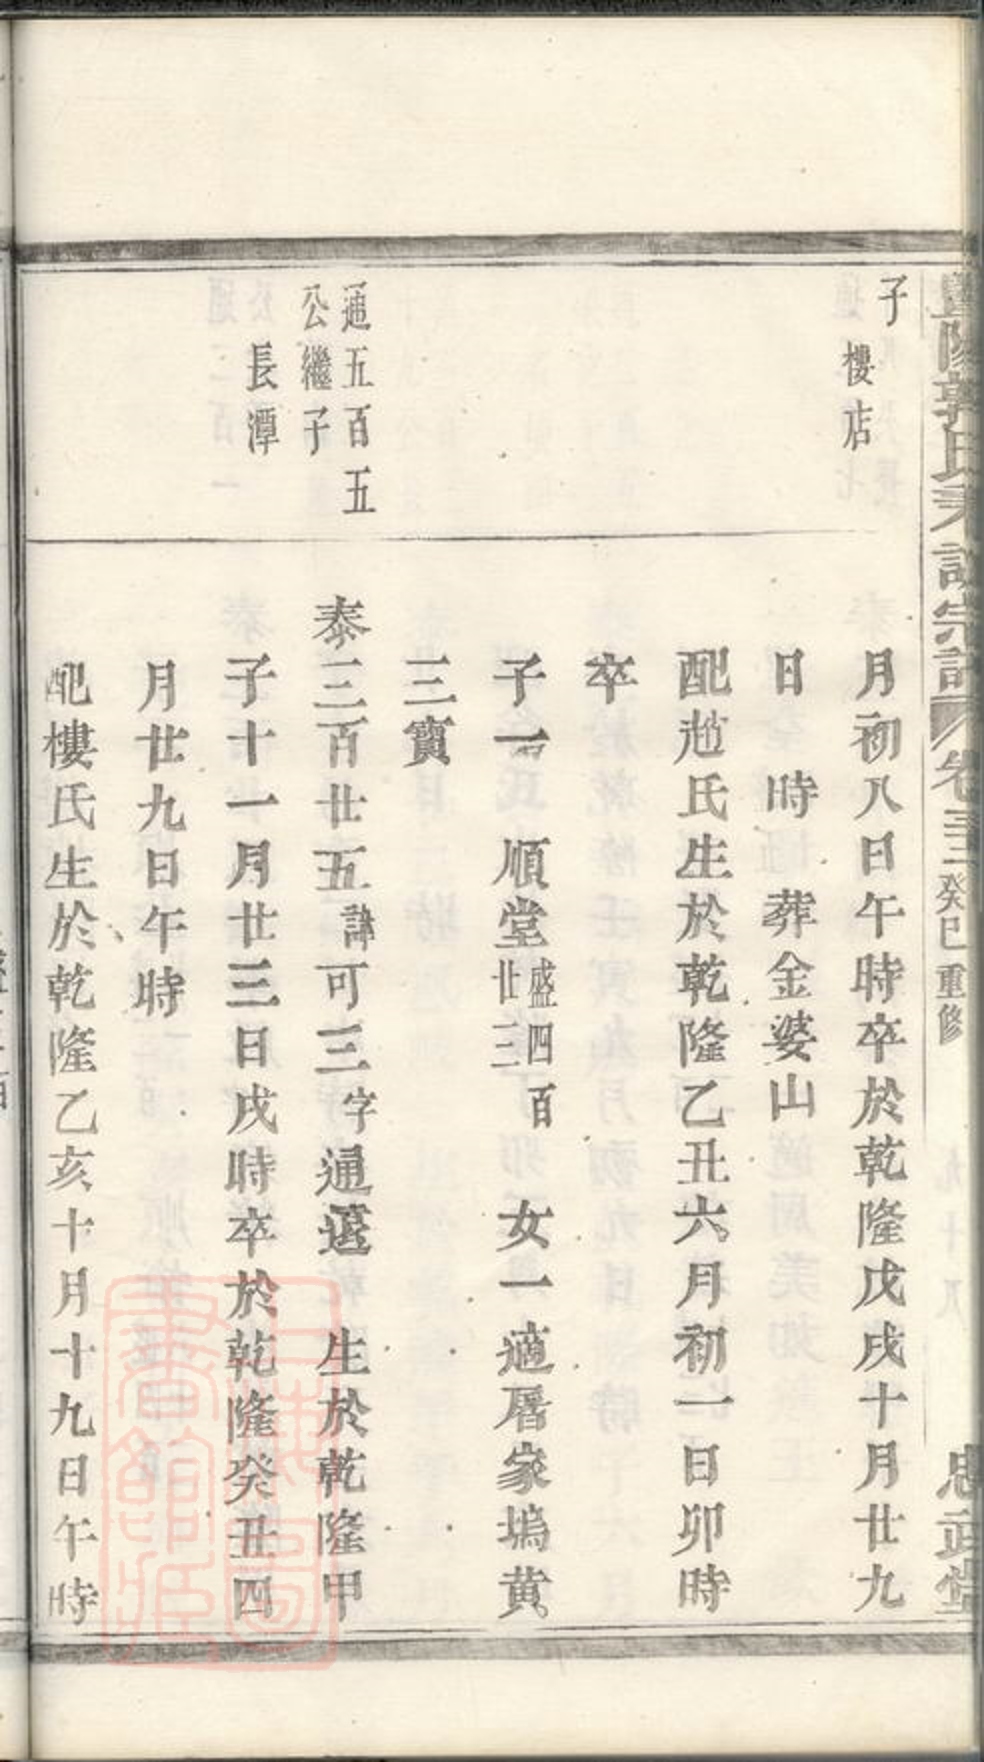 子
樓店
月初八日午時卒於乾隆戊戌十月廿九
日　時　葬金婆山
配趙氏生於乾隆乙丑六月初一日卯時
卒
子一　順堂盛四百廿三　女一適厝家塢黃
三寶
通五百五
公繼子
長潭
泰三百廿五諱可三字通暹　生於乾隆甲
子十一月廿三日戌時卒於乾隆癸丑四
月廿九日午時
配樓氏生於乾隆乙亥十月十九日午時
郭氏　宗譜　卷　癸巳重修
忠武堂